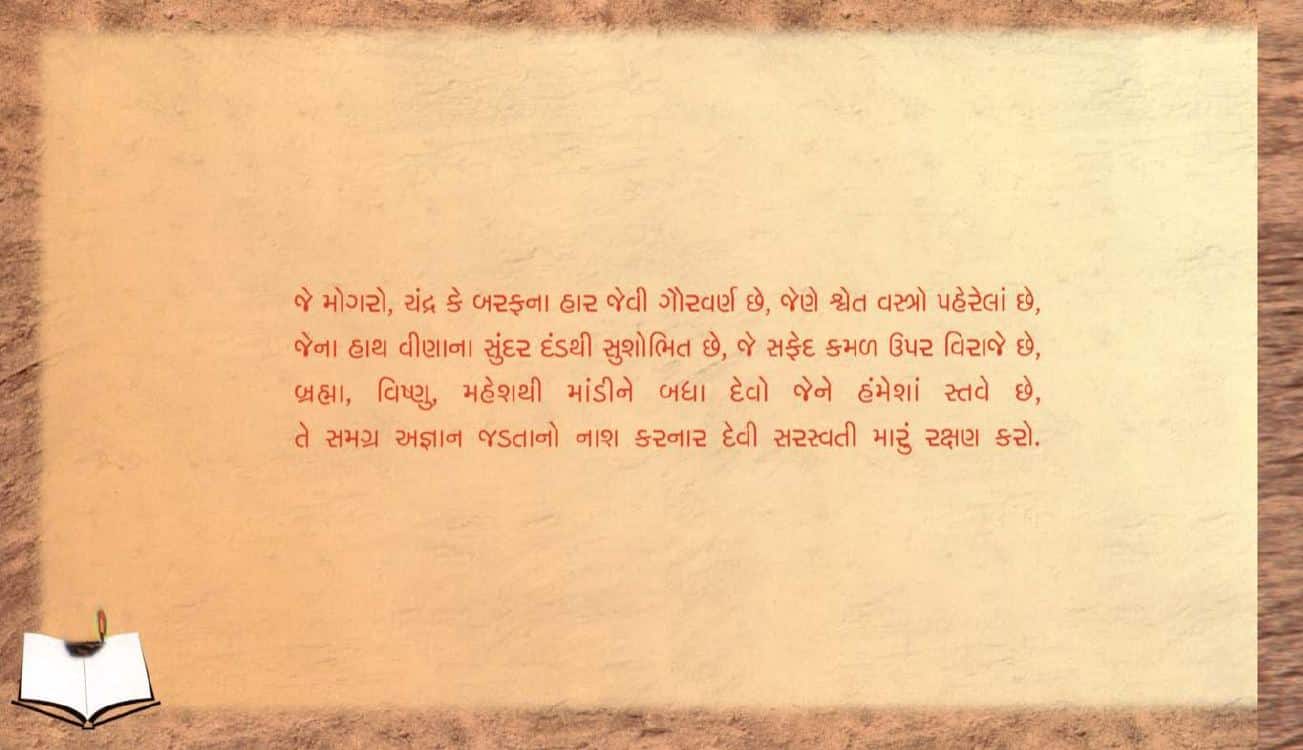 જે મોગરો, ચંદ્ર કે બરફના હાર જેવી ગૌરવર્ણ છે, જેણે શ્વેત વસ્ત્રો પહેરેલાં છે,
જેના હાથ વીણાના સુંદર દંડથી સુશોભિત છે, જે સફેદ કમળ ઉપર વિરાજે છે,
બ્રહ્મા, વિષ્ણુ, મહેશથી માંડીને બધા દેવો જેને હંમેશાં સ્તવે છે,
તે સમગ્ર અજ્ઞાન જડતાનો નાશ કરનાર દેવી સરસ્વતી મારું રક્ષણ કરો.